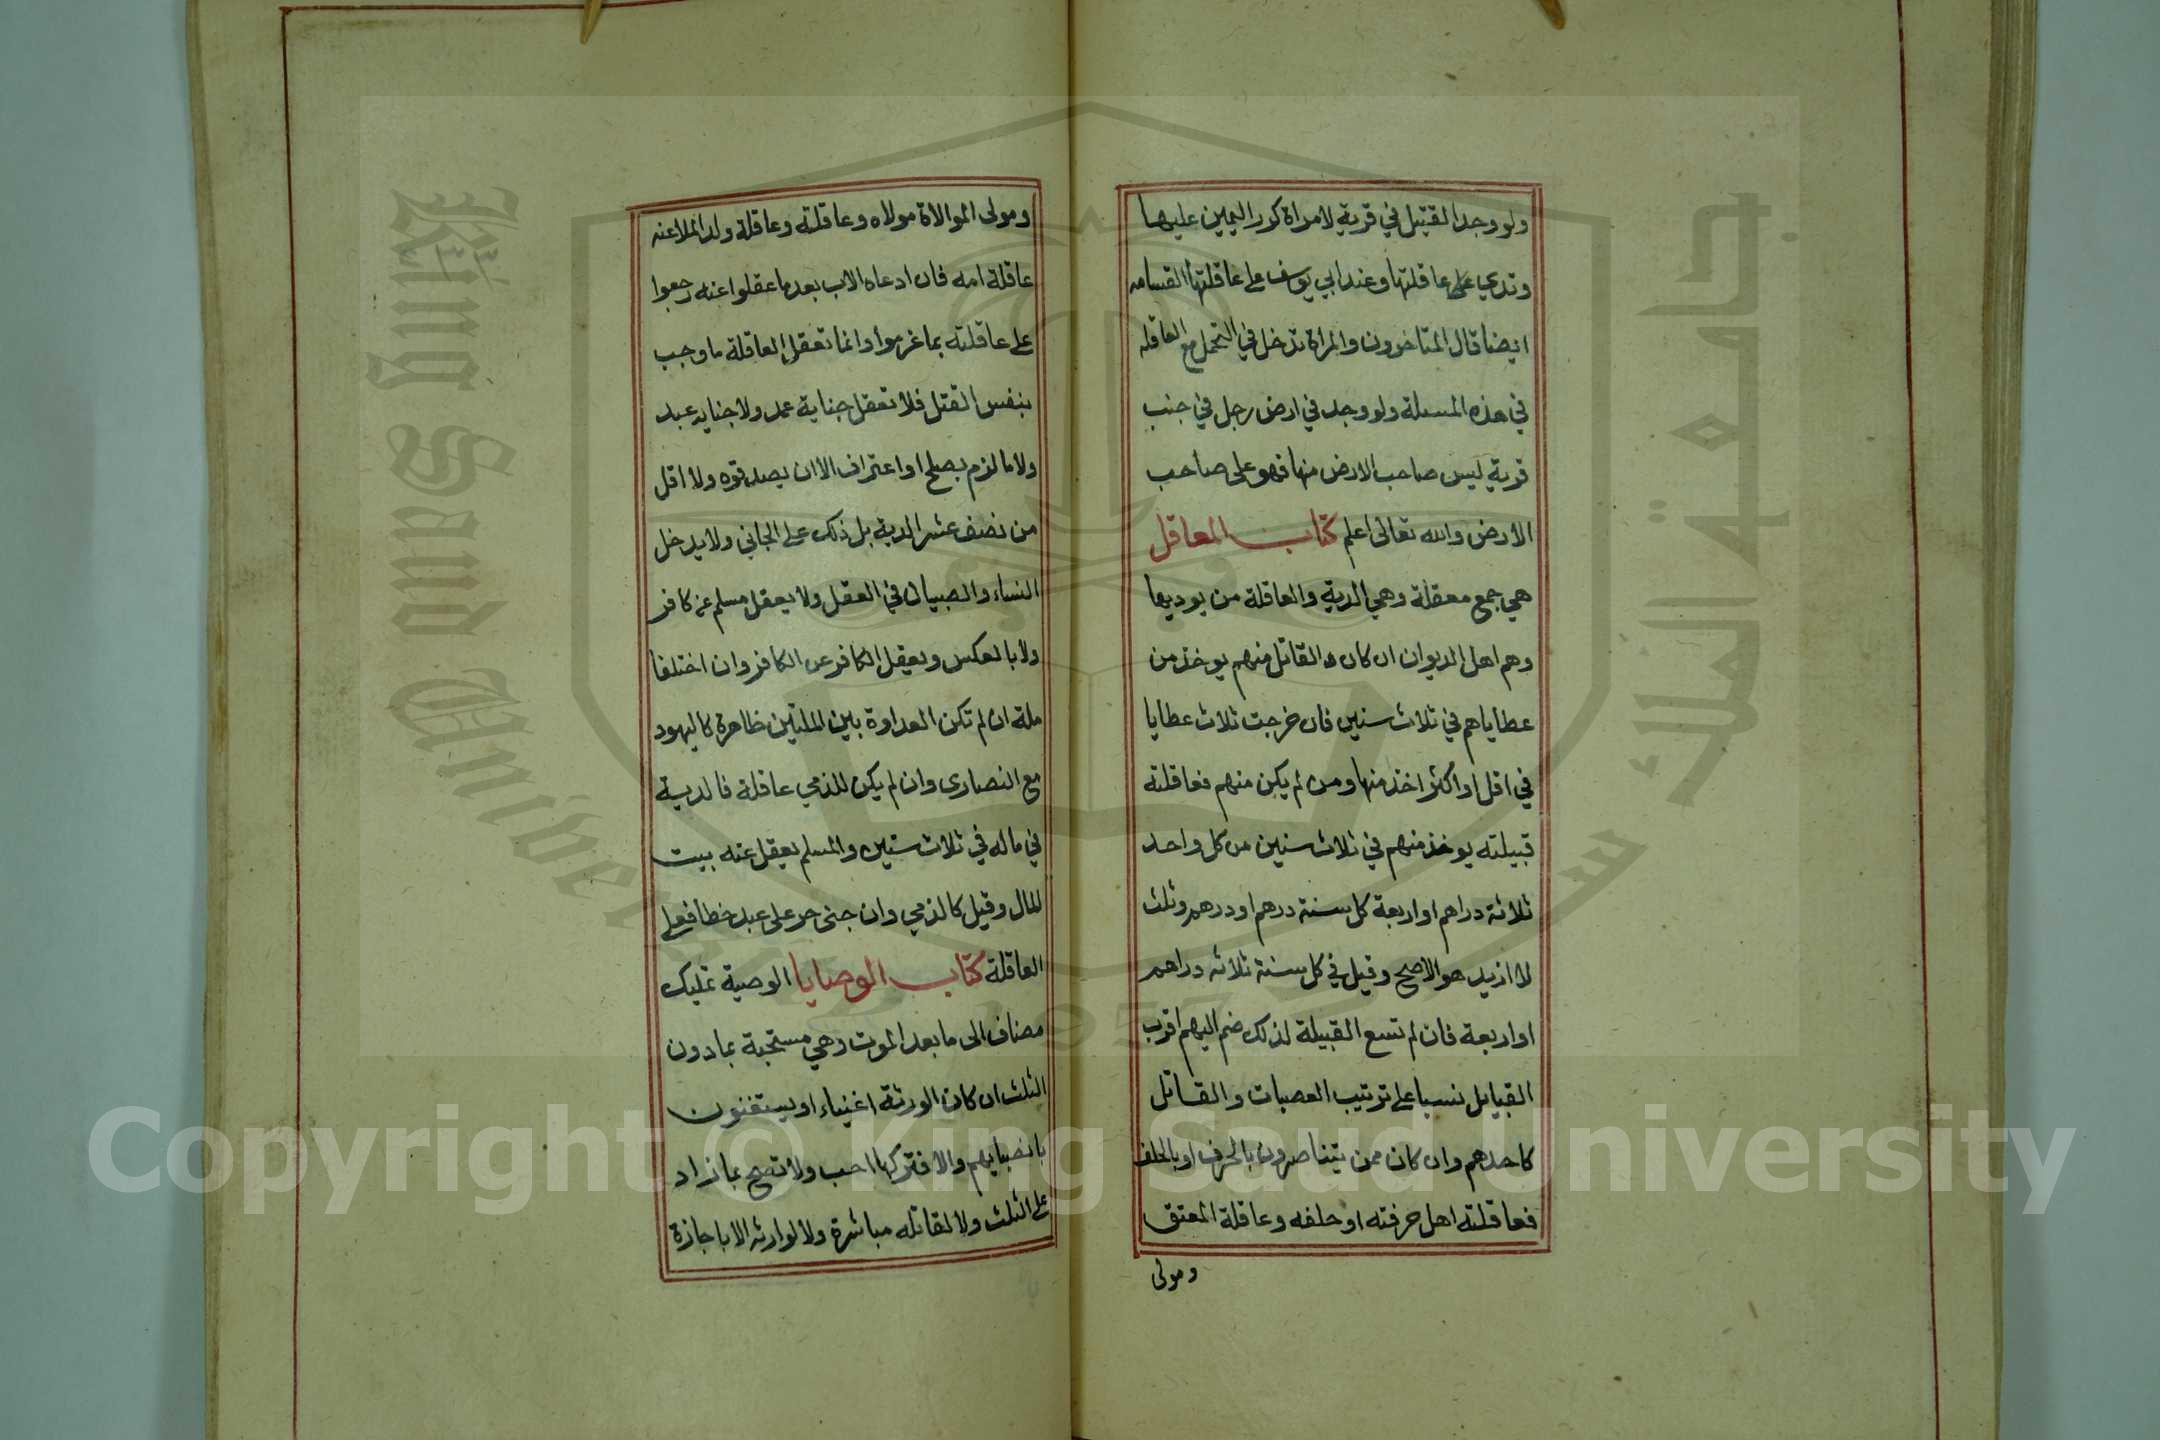 ولو وجد القتيل في قرية لامراة كرر اليمين عليها
وتدي على عاقلتها وعند ابي يوسف على عاقلتها القسامه
ايضا قال المتاخرون والمراة تدخل في التحمل مع العاقله
في هذه المسىلة ولو وجد في ارض رجل في جنب
قرية ليس صاحب الارض منها فهو على صاحب
الارض والله تعالى اعلم كتاب المعاقل
هي جمع معقلة وهي الدية والعاقلة من يوديها
وهم اهل الديوان ان كان القاتل منهم يوخذ من
عطاياهم في ثلاث سنين فان خرجت ثلاث عطايا
في اقل او اكثر اخذ منها ومن لم يكن منهم فعاقلته
قبيلته يوخذ منهم في ثلاث سنين من كل واحد
ثلاثة دراهم او اربعة كل سنة درهم او درهم وثلث
لا ازيد هو الاصح وقيل في كل سنة ثلاثه دراهم
او اربعة فان لم تسع القبيلة لذلك ضم اليهم اقرب
القبايل نسبا على ترتيب العصبات والقاتل
كاحدهم وان كان ممن يتناصرون بالحرف او بالحلف
فعاقلته اهل حرفته او حلفه وعاقلة المعتق
ومولى
ومولى الموالاة مولاه وعاقلته وعاقلة ولد الملاعنه
عاقلة امه فان ادعاه الاب بعد ما عقلوا عنه رجعوا
على عاقلته بما غرموا وانما تعقل العاقلة ما وجب
بنفس القتل فلا تعقل جناية عمد ولا جنايه عبد
ولا ما لزم بصلح او اعتراف الا ان يصدقوه ولا اقل
من نصف عشر الدية بل ذلك على الجاني ولا يدخل
النساء والصبيان في العقل ولا يعقل مسلم عن كافر
ولا بالعكس ويعقل الكافر عن الكافر وان اختلفا
ملة ان لم تكن العداوة بين الملتين ظاهرة كاليهود
مع النصارى وان لم يكن للذمي عاقلة فالدية
في ماله في ثلاث سنين والمسلم يعقل عنه بيت
المال وقيل كالذمي وان جنى حر على عبد خطا فعلى
العاقلة كتاب الوصايا الوصية تمليك
مضاف الى ما بعد الموت وهي مستحبة بما دون
الثلث ان كان الورثة اغنياء او يستغنون
بانصبايهم والا فتركها احب ولا تصح بما زاد
على الثلث ولا لقاتله مباشرة ولا لوارثه الا باجازة
جامعة الملك سعود
King Saud University
1957
Copyright © King Saud University